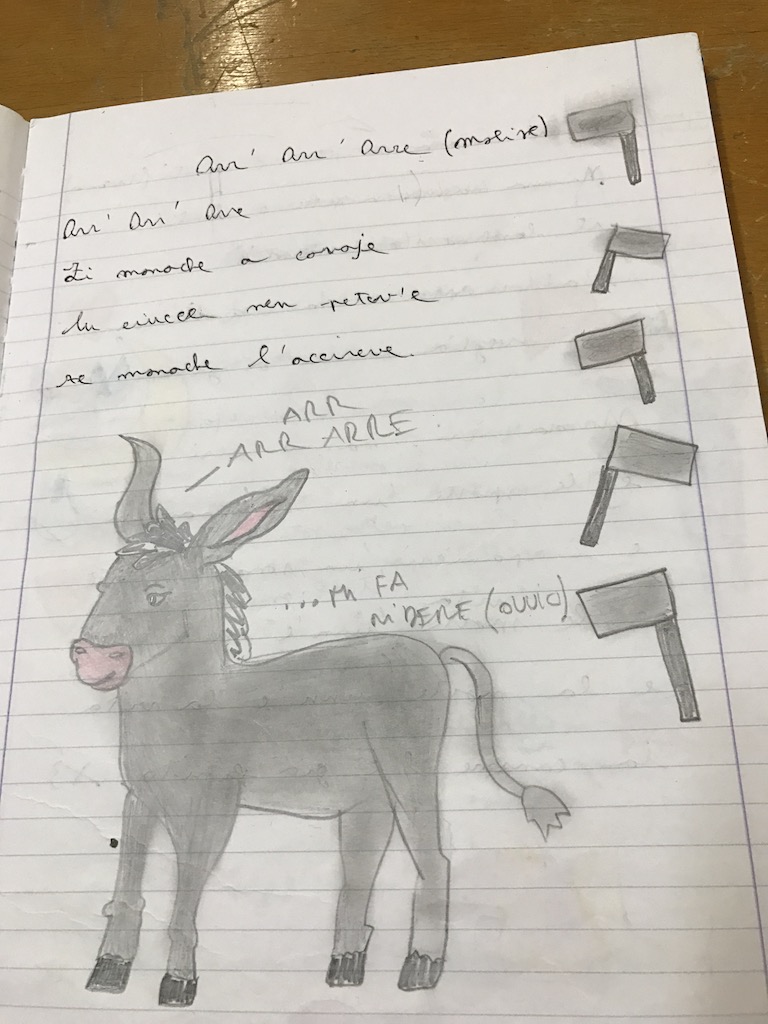 Arr' Arr' Arre (molise)
Arr' Arr' Arre
Zi monache a cavaje
lu ciucce nen petev'e
ze monache l'accireve.
ARR
ARR ARRE
...M' FA
M'DERE (OUUIC)